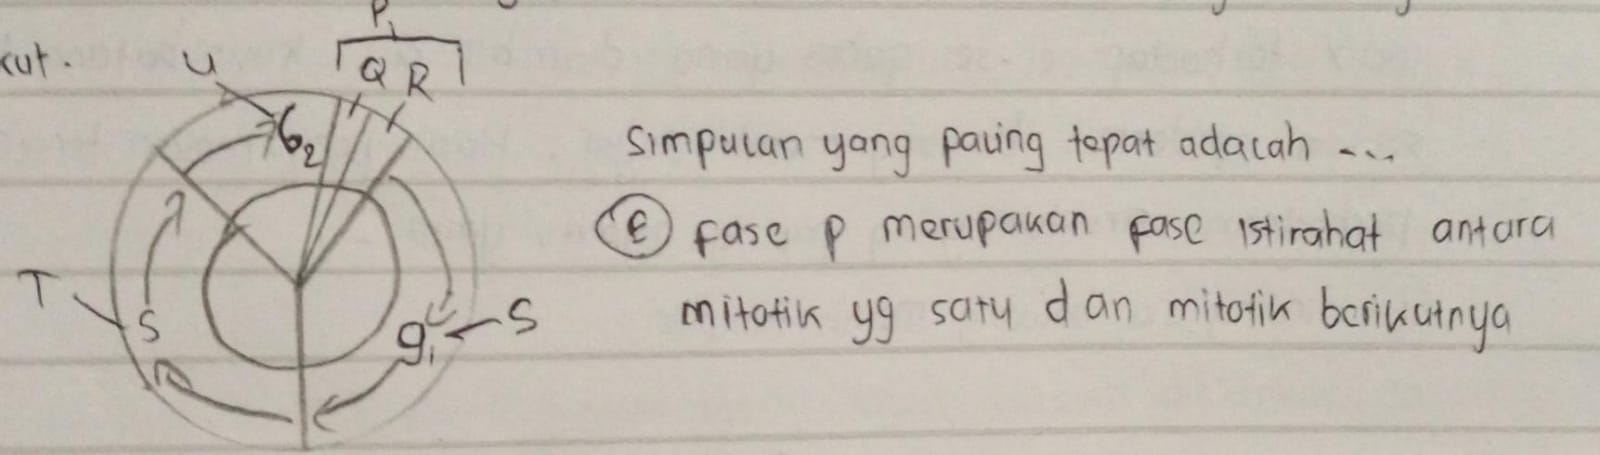 kut. u P
Q R
G2
T S g1 S
Simpulan yang paling tepat adalah ....
E fase p merupakan fase istirahat antara
mitotik yg satu dan mitotik berikutnya